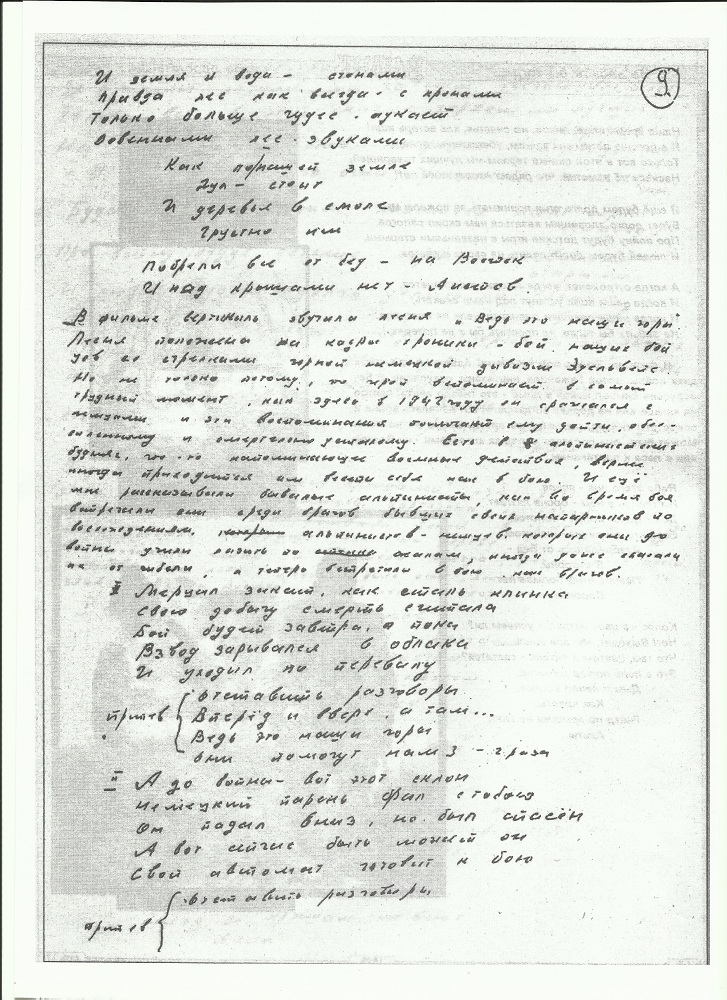 9
И земля и вода - стонами
Правда лес как всегда - с кронами
Только больше чудес - аукает
Довенными лес - звуками
Как парящей земле
Гул - стоит
И деревья в смоле
Грустно им
Побрели все от бед - на Восток
И над крышами нет - Аистов.
В фильме вертикаль звучила песня "Ведь это наши горы"
Песня положена на кадры хроники - бой наших бой
цов со стрелками горной немецкой дивизии Эдельвейс
Но не только потому, что герой вспоминает в самый
трудный момент, как здесь в 1942 году он сражался с
немцами и эти воспоминания помогают ему дойти, обес-
силенному и смертельно усталому. Есть в альпинистских
буднях, что-то напоминающее военные действия,
иногда приходится им вести себя как в бою. И ещё
мне рассказывали бывалые альпинисты как во время боя
встречали они среди врагов бывших своих напарников по
восхождениям, альпинистов - немцев. которые они до
войны учили лазить по скалам, иногда даже спасали
их от гибели, а теперь встретили в бою как врагов.
I Мерцал закат, как сталь клинка
Свою добычу смерть считала
Бой будет завтра, а пока
Взвод зарывался в облака
И уходил по перевалу
припев
Отставить разговоры
Вперёд и вверх, а там...
Ведь это наши горы
Они помогут нам 3 - 2 раза
II А до войны - вот этот склон
Немецкий парень брал с тобою
Он падал вниз, но был спасён
А вот сейчас быть может он
Свой автомат готовит к бою
припев
Отставить разговоры